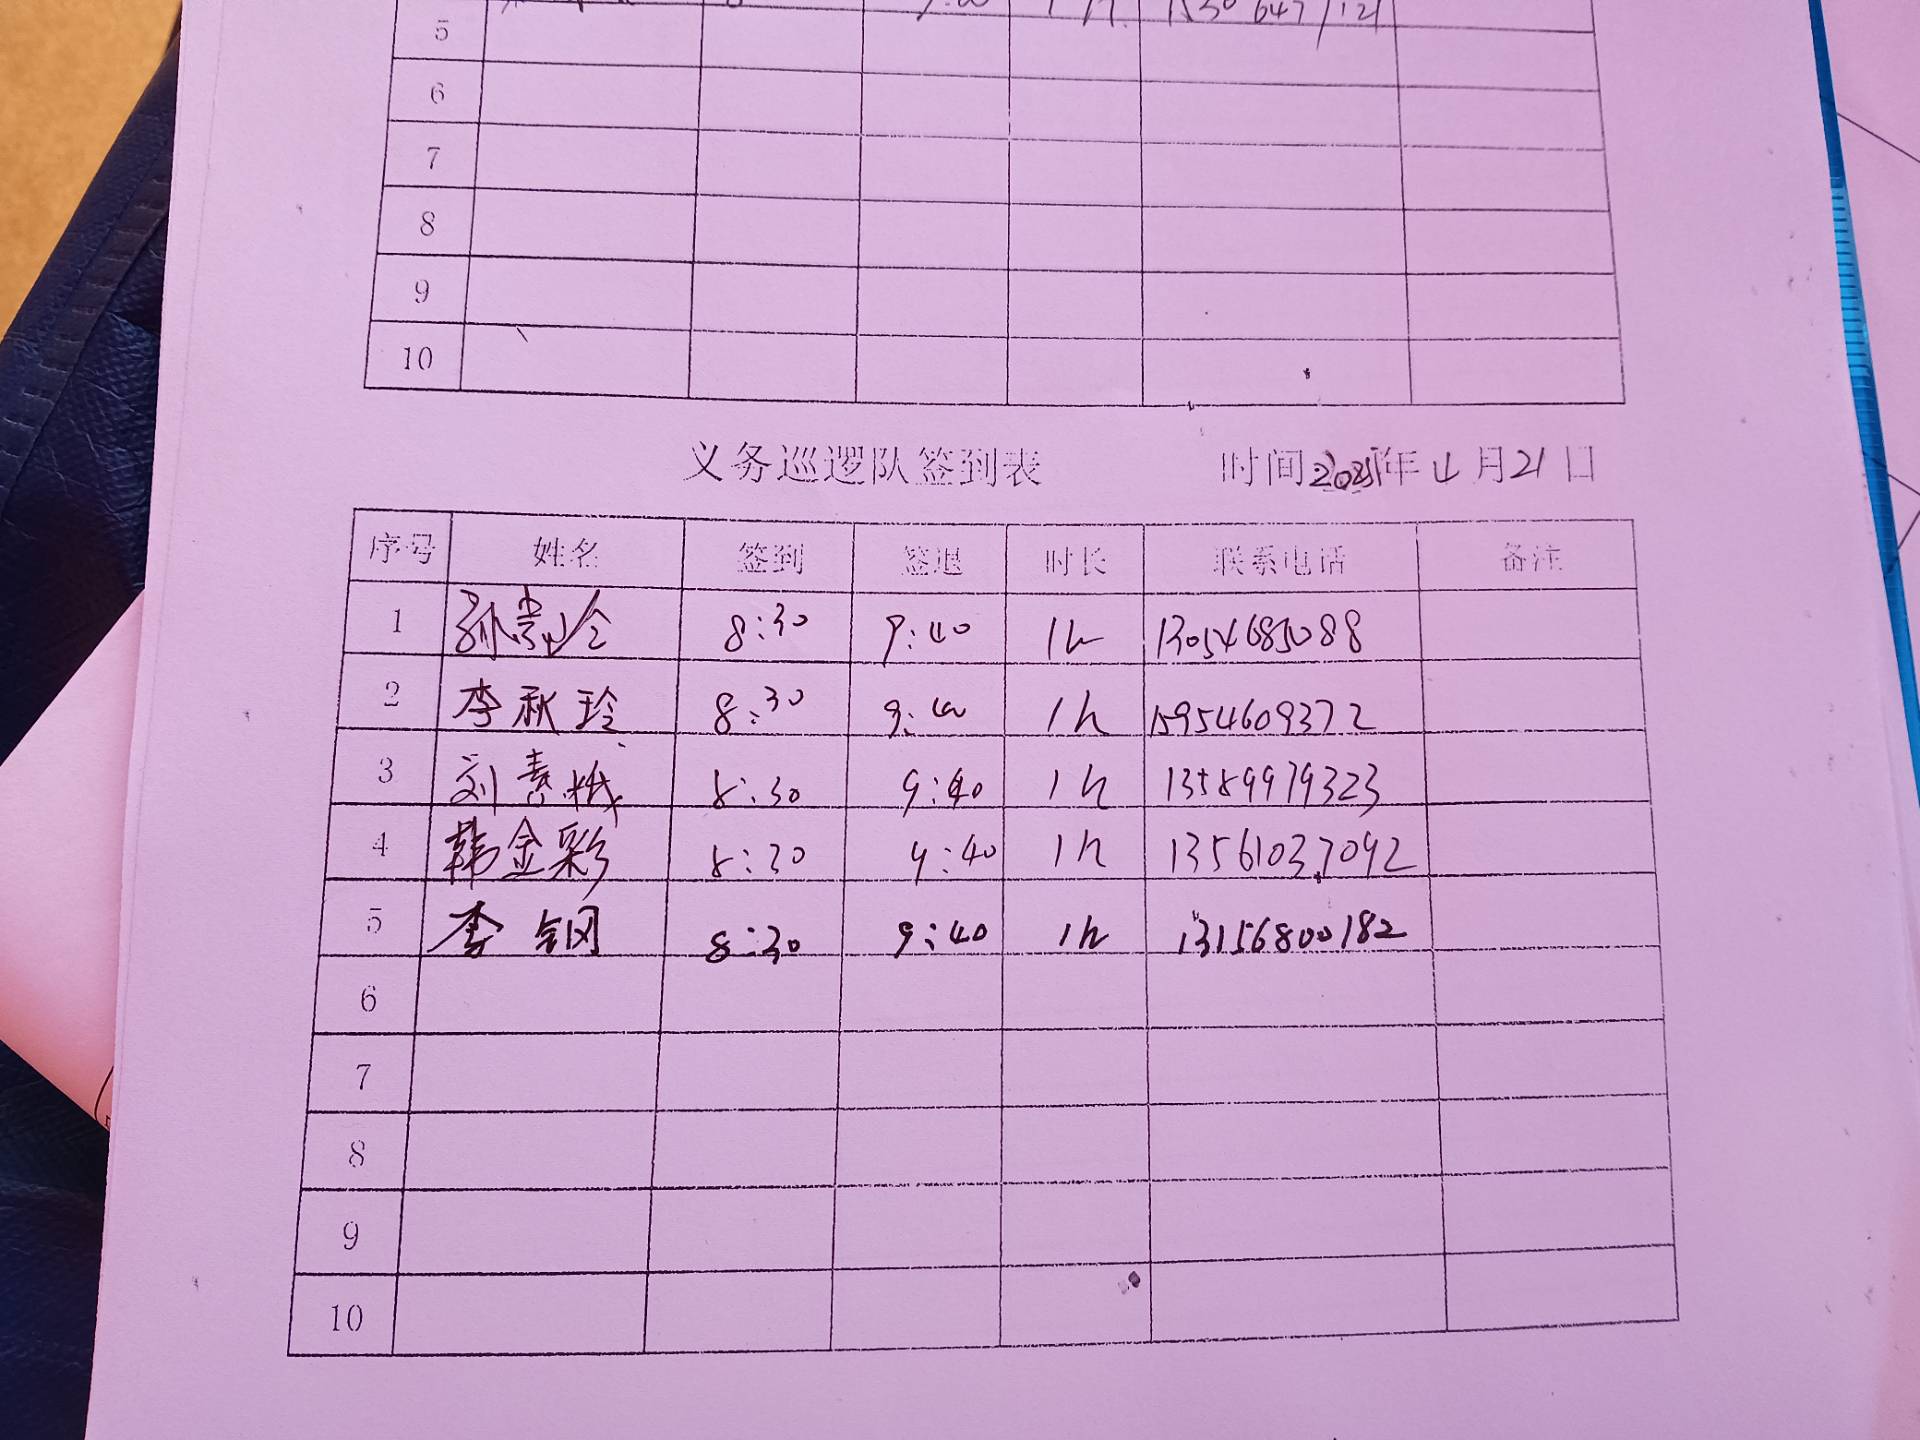 5
6
7
8
9
10
义务巡逻队签到表 时间2021年4月21日
序号 姓名 签到 签退 时长 联系电话 备注
1 孙崇玲 8:30 9:40 1h 13054685088
2 李秋玲 8:30 9:40 1h 15954609372
3 刘素娥 8:30 9:40 1h 13589979323
4 韩金彩 8:30 9:40 1h 13561037092
5 李钢 8:30 9:40 1h 13156800182
6
7
8
9
10